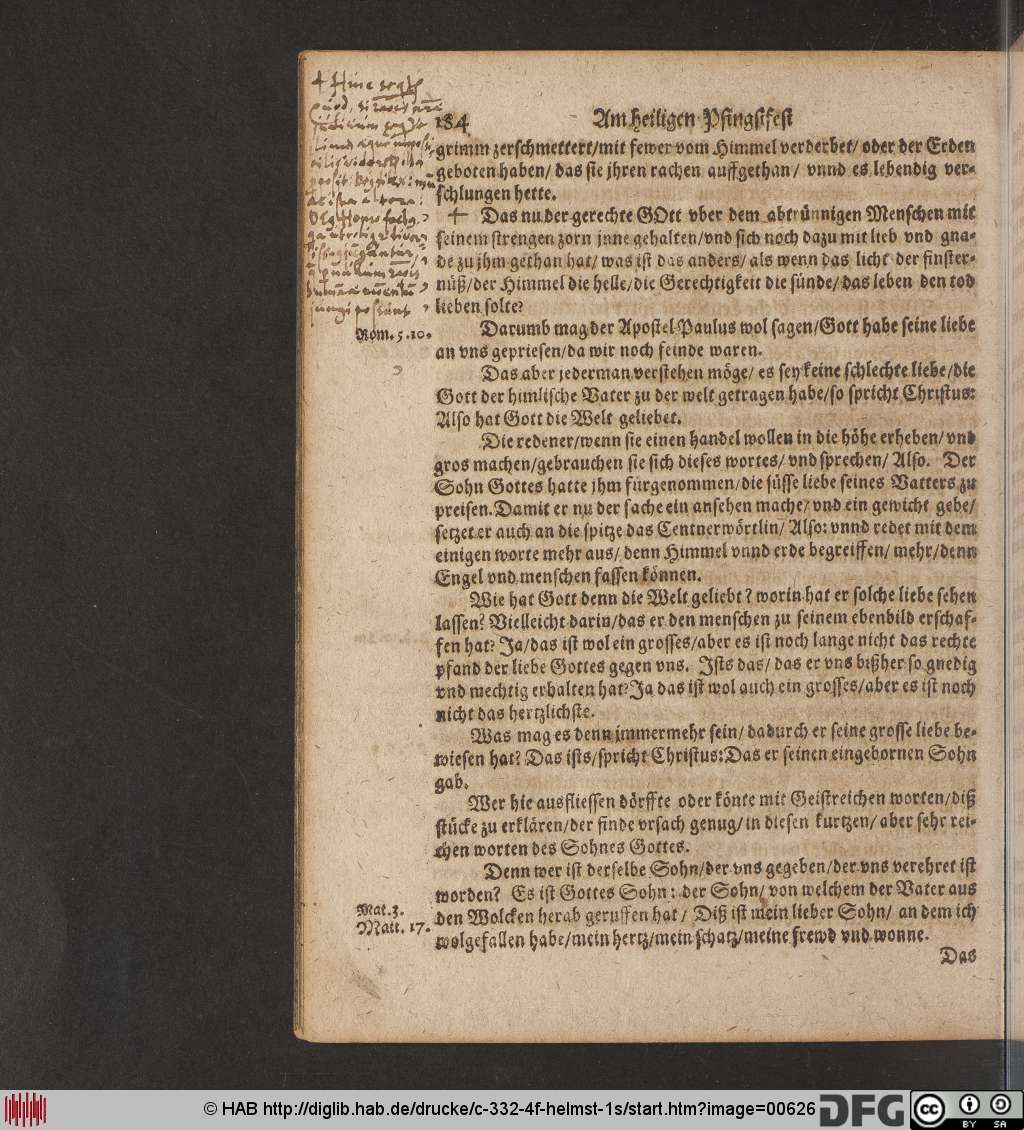 184 Am heiligen Pfingstfest
grimm zerschmettert/mit fewer vom Himmel verderbet/ oder der Erden
geboten haben/ das sie jhren rachen auffgethan/ vnnd es lebendig ver-
schlungen hette.
+ Das nu der gerechte GOtt vber dem abtrünnigen Menschen mit
seinem strengen zorn jnne gehalten/vnd sich noch dazu mit lieb vnd gna-
de zu jhm gethan hat/ was ist das anders/ als wenn das licht der finster-
nüß/der Himmel die helle/die Gerechtigkeit die sünde/das leben den tod
lieben solte?
Rom. 5.10.
Darumb mag der Apostel Paulus wol sagen/Gott habe seine liebe
an vns gepriesen/da wir noch feinde waren.
Das aber jederman verstehen möge/ es sey keine schlechte liebe/die
Gott der himlische Vater zu der welt getragen habe/so spricht Christus:
Also hat Gott die Welt geliebet.
Die redener/wenn sie einen handel wollen in die höhe erheben/vnd
gros machen/gebrauchen sie sich dieses wortes/ vnd sprechen/ Also. Der
Sohn Gottes hatte jhm fürgenommen/die süsse liebe seines Vatters zu
preisen.Damit er nu der sache ein ansehen mache/ vnd ein gewicht gebe/
setzet er auch an die spitze das Centnerwörtlin/ Also: vnnd redet mit dem
einigen worte mehr aus/ denn Himmel vnnd erde begreiffen/ mehr/denn
Engel vnd menschen fassen können.
Wie hat Gott denn die Welt geliebt? worin hat er solche liebe sehen
lassen? Vielleicht darin/das er den menschen zu seinem ebenbild erschaf-
fen hat? Ja/das ist wol ein grosses/aber es ist noch lange nicht das rechte
pfand der liebe Gottes gegen vns. Ists das/ das er vns bißher so gnedig
vnd mechtig erhalten hat?Ja das ist wol auch ein grosses/aber es ist noch
nicht das hertzlichste.
Was mag es denn jmmermehr sein/ dadurch er seine grosse liebe be-
wiesen hat? Das ists/spricht Christus:Das er seinen eingebornen Sohn
gab.
Wer hie ausfliessen dörffte oder könte mit Geistreichen worten/diß
stücke zu erklären/der finde vrsach genug/in diesen kurtzen/ aber sehr rei-
chen worten des Sohnes Gottes.
Denn wer ist derselbe Sohn/der vns gegeben/der vns verehret ist
worden? Es ist Gottes Sohn: der Sohn/ von welchem der Vater aus
Mat.3.
Matt. 17.
den Wolcken herab geruffen hat/ Diß ist mein lieber Sohn/ an dem ich
wolgefallen habe/mein hertz/mein schatz/meine frewd vnd wonne.
Das
© HAB http://diglib.hab.de/drucke/c-332-4f-helmst-1s/start.htm?image=00626
DFG
cc BY SA